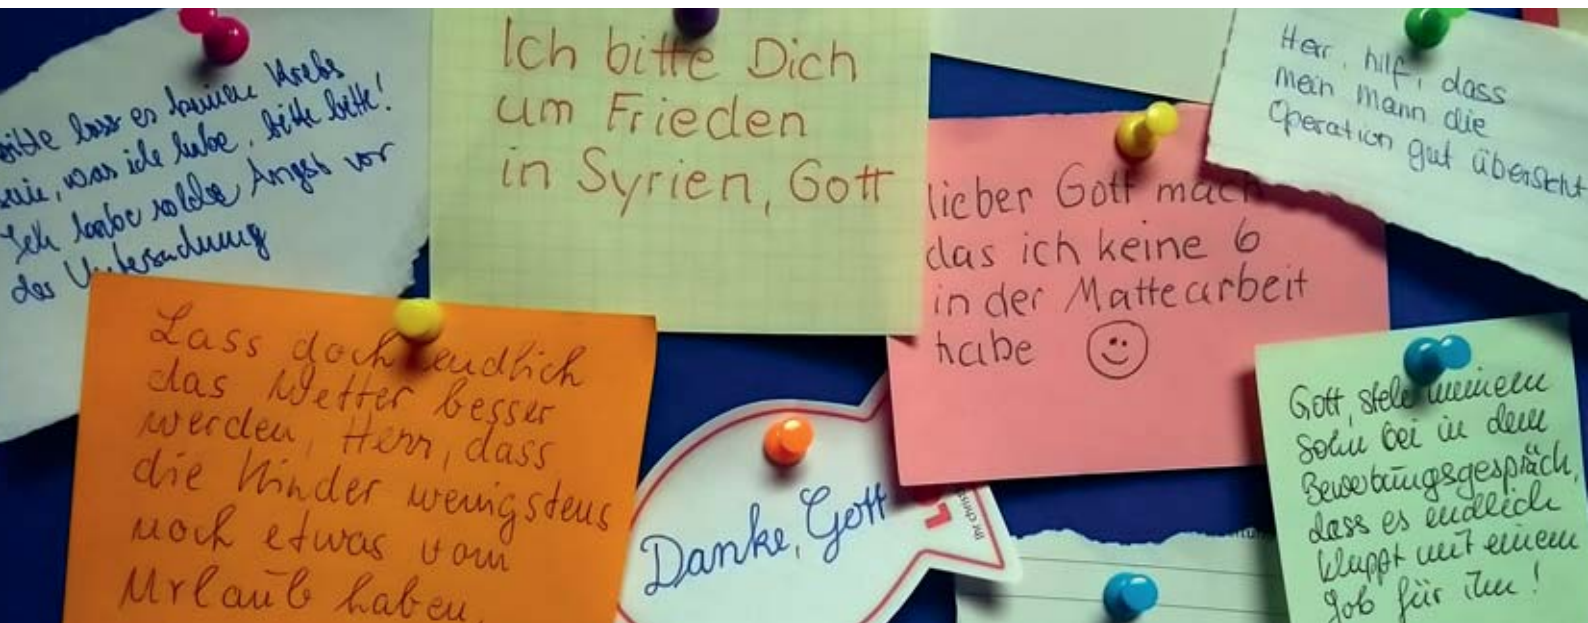 bitte lass es keinen Krebs
sein, was ich habe, bitte bitte!
Ich habe solche Angst vor
der Untersuchung
Ich bitte Dich
um Frieden
in Syrien, Gott
lieber Gott mach
das ich keine 6
in der Mattearbeit
habe
Herr, hilf, dass
mein Mann die
Operation gut übersteht
Lass doch endlich
das Wetter besser
werden, Herr, dass
die Kinder wenigstens
noch etwas vom
Urlaub haben.
Danke, Gott
Gott, steh meinem
Sohn bei in dem
Bewerbungsgespräch,
dass es endlich
klappt mit einem
Job für ihn!